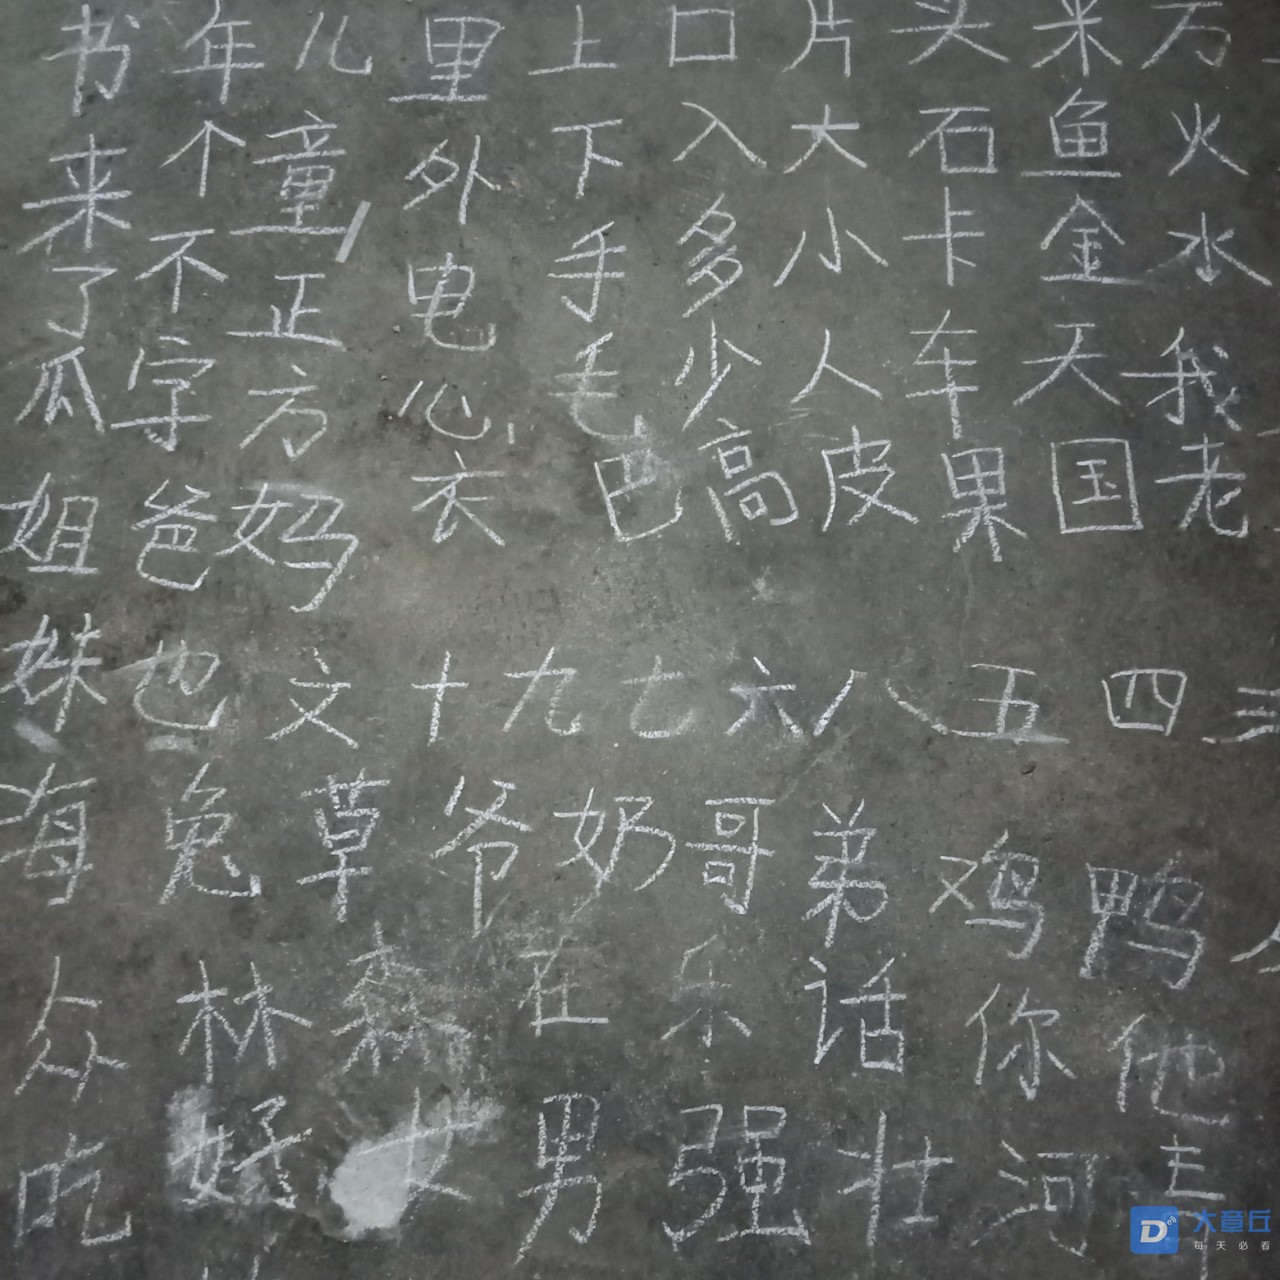 书年儿里上口片头米万
来个童外下入大石鱼火
了不正电手多小卡金水
瓜字方心毛少人车天我
姐爸妈衣巴高皮果国老
妹也文十九七六八五四三
海兔草爷奶哥弟鸡鸭
众林森在乐话你他
吃好女男强壮河
大章丘
每天必看